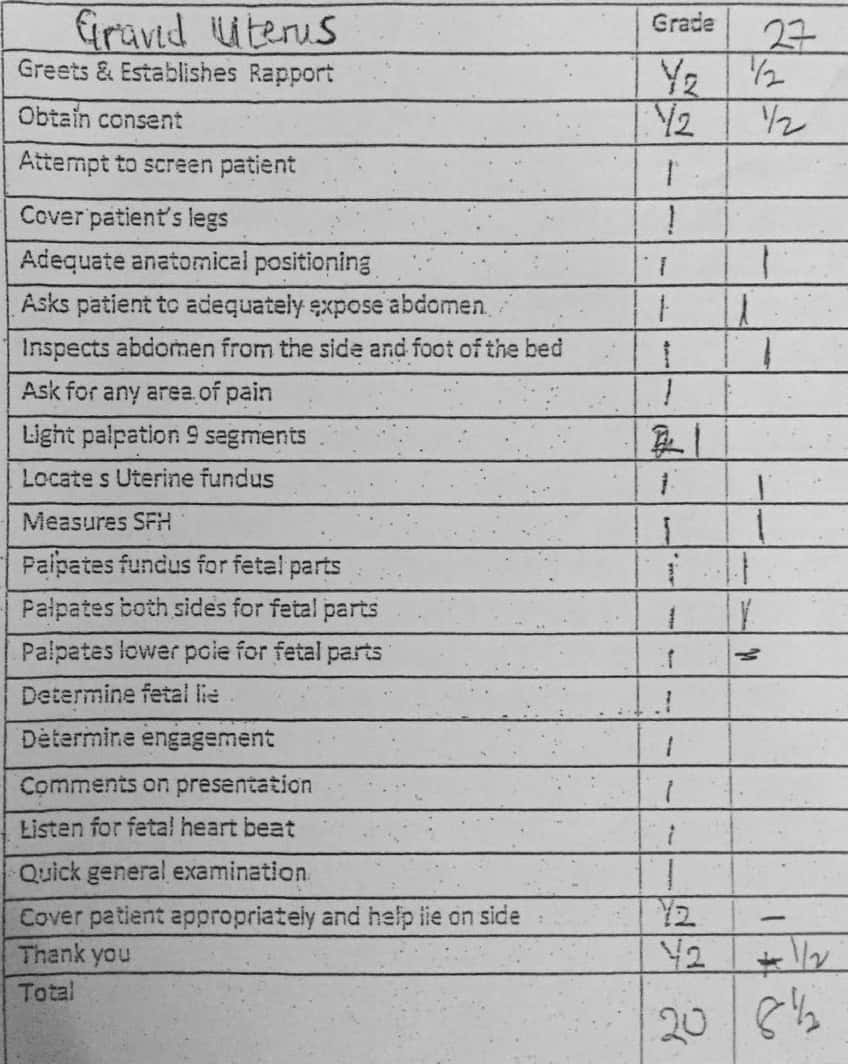 Gravid Uterus Grade 27
Greets & Establishes Rapport 1/2 1/2
Obtain consent 1/2 1/2
Attempt to screen patient 1
Cover patient's legs 1
Adequate anatomical positioning 1 1
Asks patient to adequately expose abdomen 1 1
Inspects abdomen from the side and foot of the bed 1 1
Ask for any area of pain 1
Light palpation 9 segments 1
Locate s Uterine fundus 1 1
Measures SFH 1 1
Palpates fundus for fetal parts 1 1
Palpates both sides for fetal parts 1 1
Palpates lower pole for fetal parts 1
Determine fetal lie 1
Determine engagement 1
Comments on presentation 1
Listen for fetal heart beat 1
Quick general examination 1
Cover patient appropriately and help lie on side 1/2 —
Thank you 1/2 1/2
Total 20 8 1/2